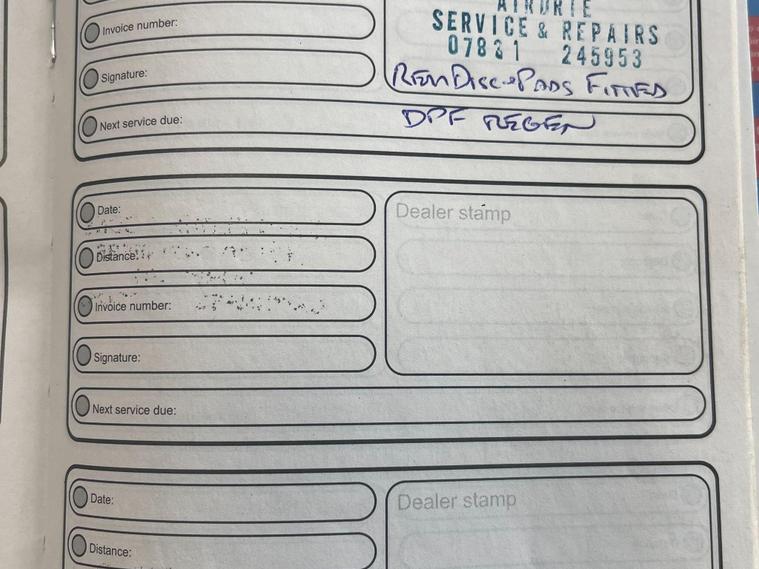 AIRDRIE
Invoice number:
SERVICE & REPAIRS
07831 245953
Signature:
DISC & PADS FITTED
Next service due:
DPF REGEN
Date:
Dealer stamp
Distance:
Invoice number:
Signature:
Next service due:
Date:
Dealer stamp
Distance: